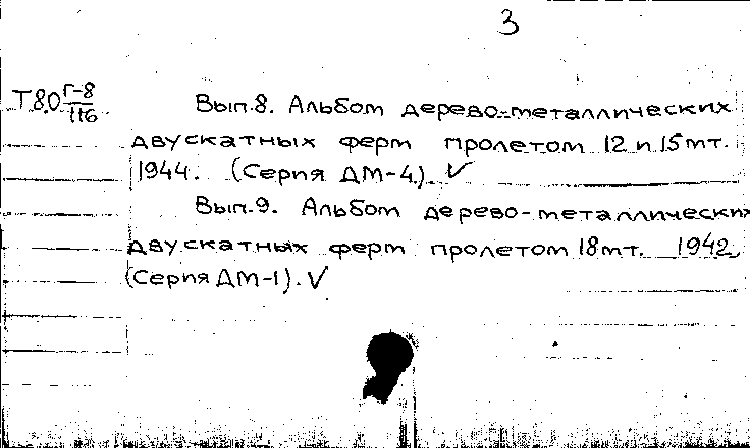 3
Т8.0 Г-8/116 Вып.8. Альбом дерево-металлических
двускатных ферм пролетом 12 и 15 мт.
1944. (Серия ДМ-4) ✓
Вып.9. Альбом дерево-металлических
двускатных ферм пролетом 18 мт. 1942.
(Серия ДМ-1). ✓